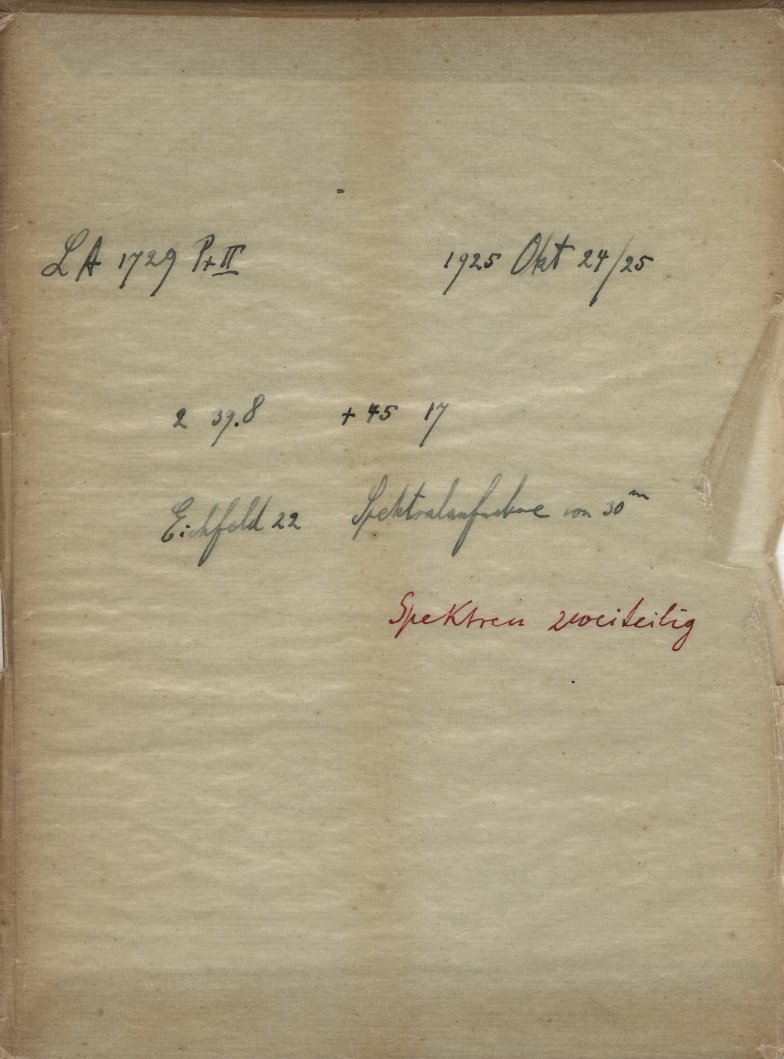 LA 1729 Pr II 1925 Okt 24/25
2 39.8 + 45 17
Eichfeld 22 Spektralaufnahme von 30ᵐ
Spektren zweiteilig